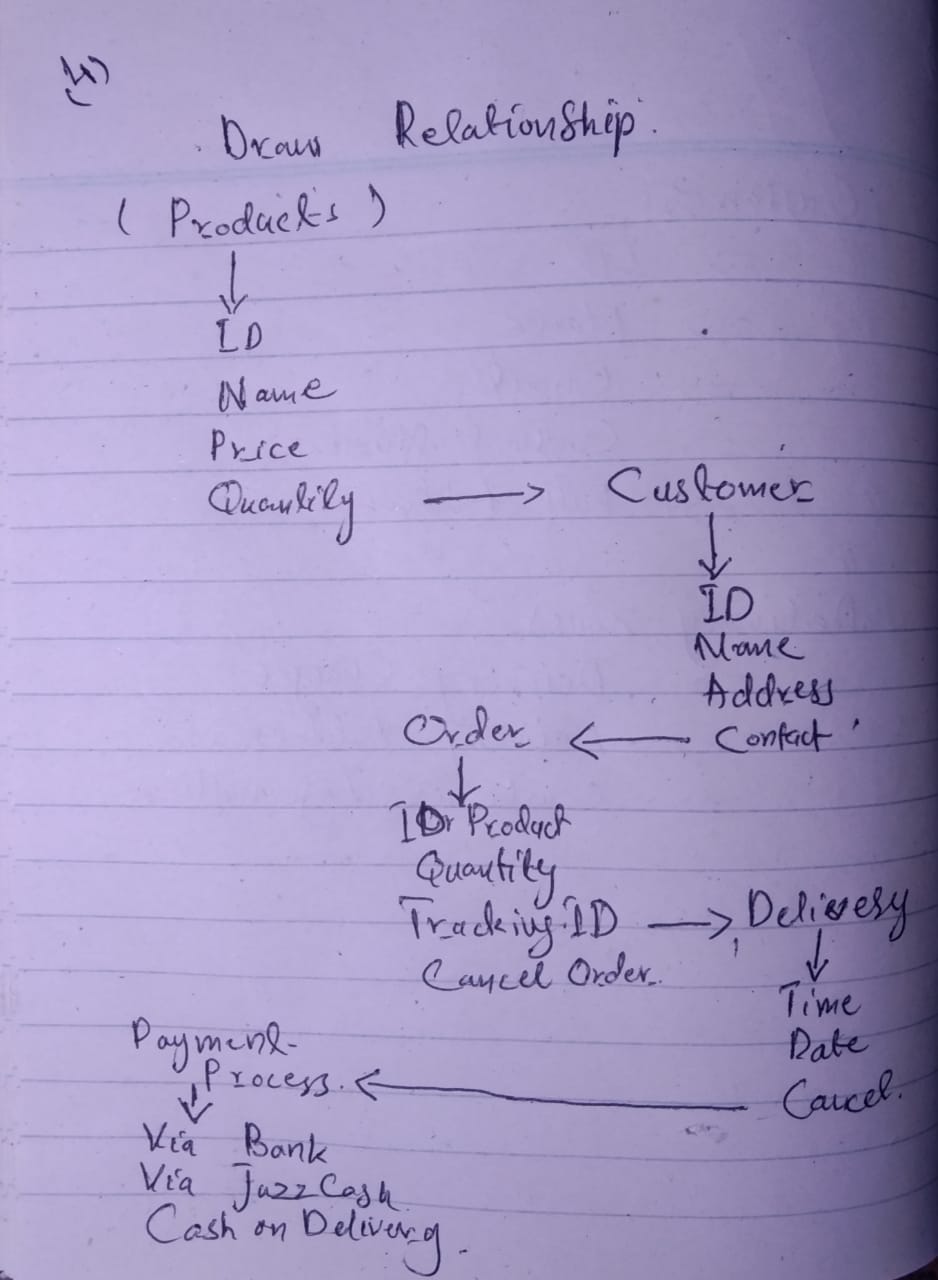 4)
Draw Relationship.
( Products )
ID
Name
Price
Quantity → Customer
ID
Name
Address
Order ← Contact
ID Product
Quantity
Tracking ID → Delivery
Cancel Order.
Time
Date
Payment
Process. ← Cancel.
Via Bank
Via JazzCash
Cash on Delivery.